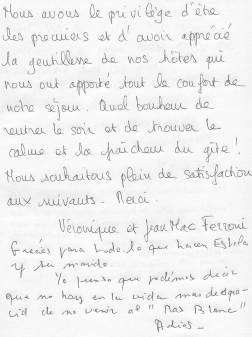 Nous avons le privilège d'être
les premiers et d'avoir apprécié
la gentillesse de nos hôtes qui
nous ont apporté tout le confort de
notre séjour. Quel bonheur de
rentrer le soir et de trouver le
calme et la fraîcheur du gîte !
Nous souhaitons plein de satisfaction
aux suivants. Merci.
Véronique et Jean Mac Ferroni
Gracias para todo lo que hacen Estela
y su marido.
Yo pienso que podemos decir
que no hay en la vida mas desgra-
cia de no venir al "Mas Blanc"
Adios -